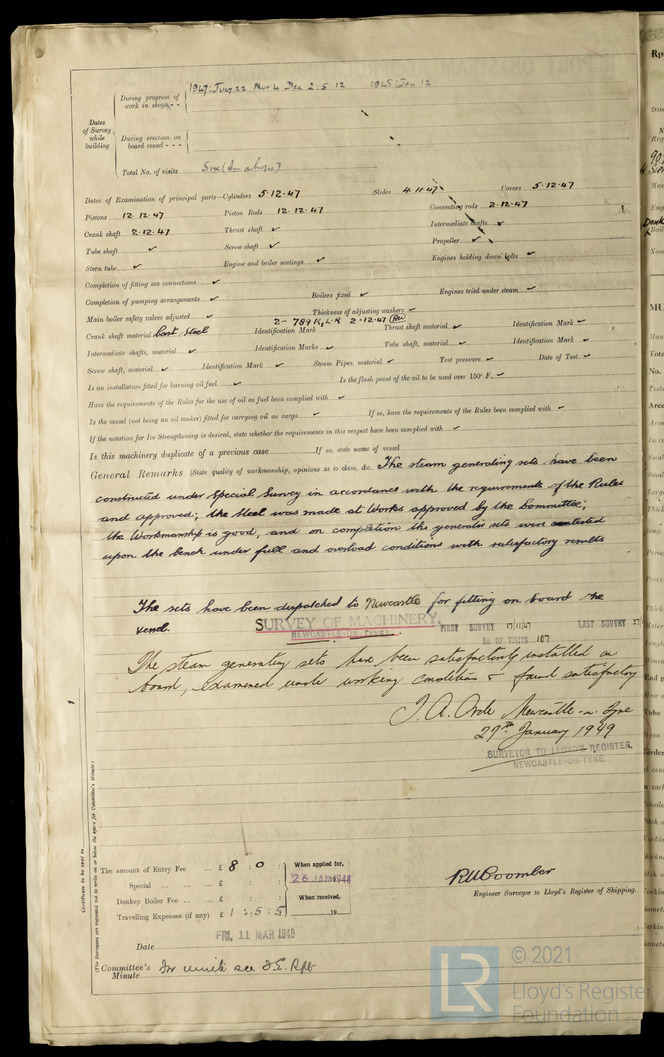 1947: July 22 Nov 4 Dec 2. 5 12 1948: Jan 12
During progress of work in shops - -
Dates of Survey while building
During erection on board vessel - - -
Total No. of visits Six (In shops)
Dates of Examination of principal parts—Cylinders 5.12.47 Slides 4.11.47 Covers 5.12.47
Pistons 12.12.47 Piston Rods 12.12.47 Connecting rods 2.12.47
Crank shaft 2.12.47 Thrust shaft ✓ Intermediate shafts ✓
Tube shaft ✓ Screw shaft ✓ Propeller ✓
Stern tube ✓ Engine and boiler seatings ✓ Engines holding down bolts ✓
Completion of fitting sea connections ✓
Completion of pumping arrangements ✓ Boilers fixed ✓ Engines tried under steam ✓
Main boiler safety valves adjusted ✓ Thickness of adjusting washers ✓
Crank shaft material Cast Steel Identification Mark 2- 789 K, L.R 2.12.47 Thrust shaft material ✓ Identification Mark ✓
Intermediate shafts, material ✓ Identification Marks ✓ Tube shaft, material ✓ Identification Mark ✓
Screw shaft, material ✓ Identification Mark ✓ Steam Pipes, material ✓ Test pressure ✓ Date of Test ✓
Is an installation fitted for burning oil fuel ✓ Is the flash point of the oil to be used over 150° F. ✓
Have the requirements of the Rules for the use of oil as fuel been complied with ✓
Is the vessel (not being an oil tanker) fitted for carrying oil as cargo ✓ If so, have the requirements of the Rules been complied with ✓
If the notation for Ice Strengthening is desired, state whether the requirements in this respect have been complied with ✓
Is this machinery duplicate of a previous case If so, state name of vessel
General Remarks (State quality of workmanship, opinions as to class, &c. The steam generating sets have been
constructed under Special Survey in accordance with the requirements of the Rules
and approved; the Steel was made at Works approved by the Committee;
the Workmanship is good, and on completion the generator sets were tested
upon the bench under full and overload conditions with satisfactory results
The sets have been dispatched to Newcastle for fitting on board the
vessel.
SURVEY OF MACHINERY.
NEWCASTLE-ON-TYNE.
FIRST SURVEY 17/11/47 LAST SURVEY
No OF VISITS 107
The steam generating sets have been satisfactorily installed on
board, examined under working condition & found satisfactory
J. A. Orde Newcastle-on-Tyne
27th January 1949
SURVEYOR TO LLOYD'S REGISTER.
NEWCASTLE-ON-TYNE.
Certificate to be sent to
(The Surveyors are requested not to write on or below the space for Committee's Minute.)
The amount of Entry Fee ... £ 8 : 0 :
Special ... ... ... £ : :
Donkey Boiler Fee ... ... £ : :
Travelling Expenses (if any) £ 1 : 5 : 5
When applied for,
26 JAN 1948
When received,
19
R W Coomber
Engineer Surveyor to Lloyd's Register of Shipping.
Date FRI. 11 MAR 1949
Committee's Minute
see F.E. Rpt
LR
© 2021
Lloyd's Register
Foundation